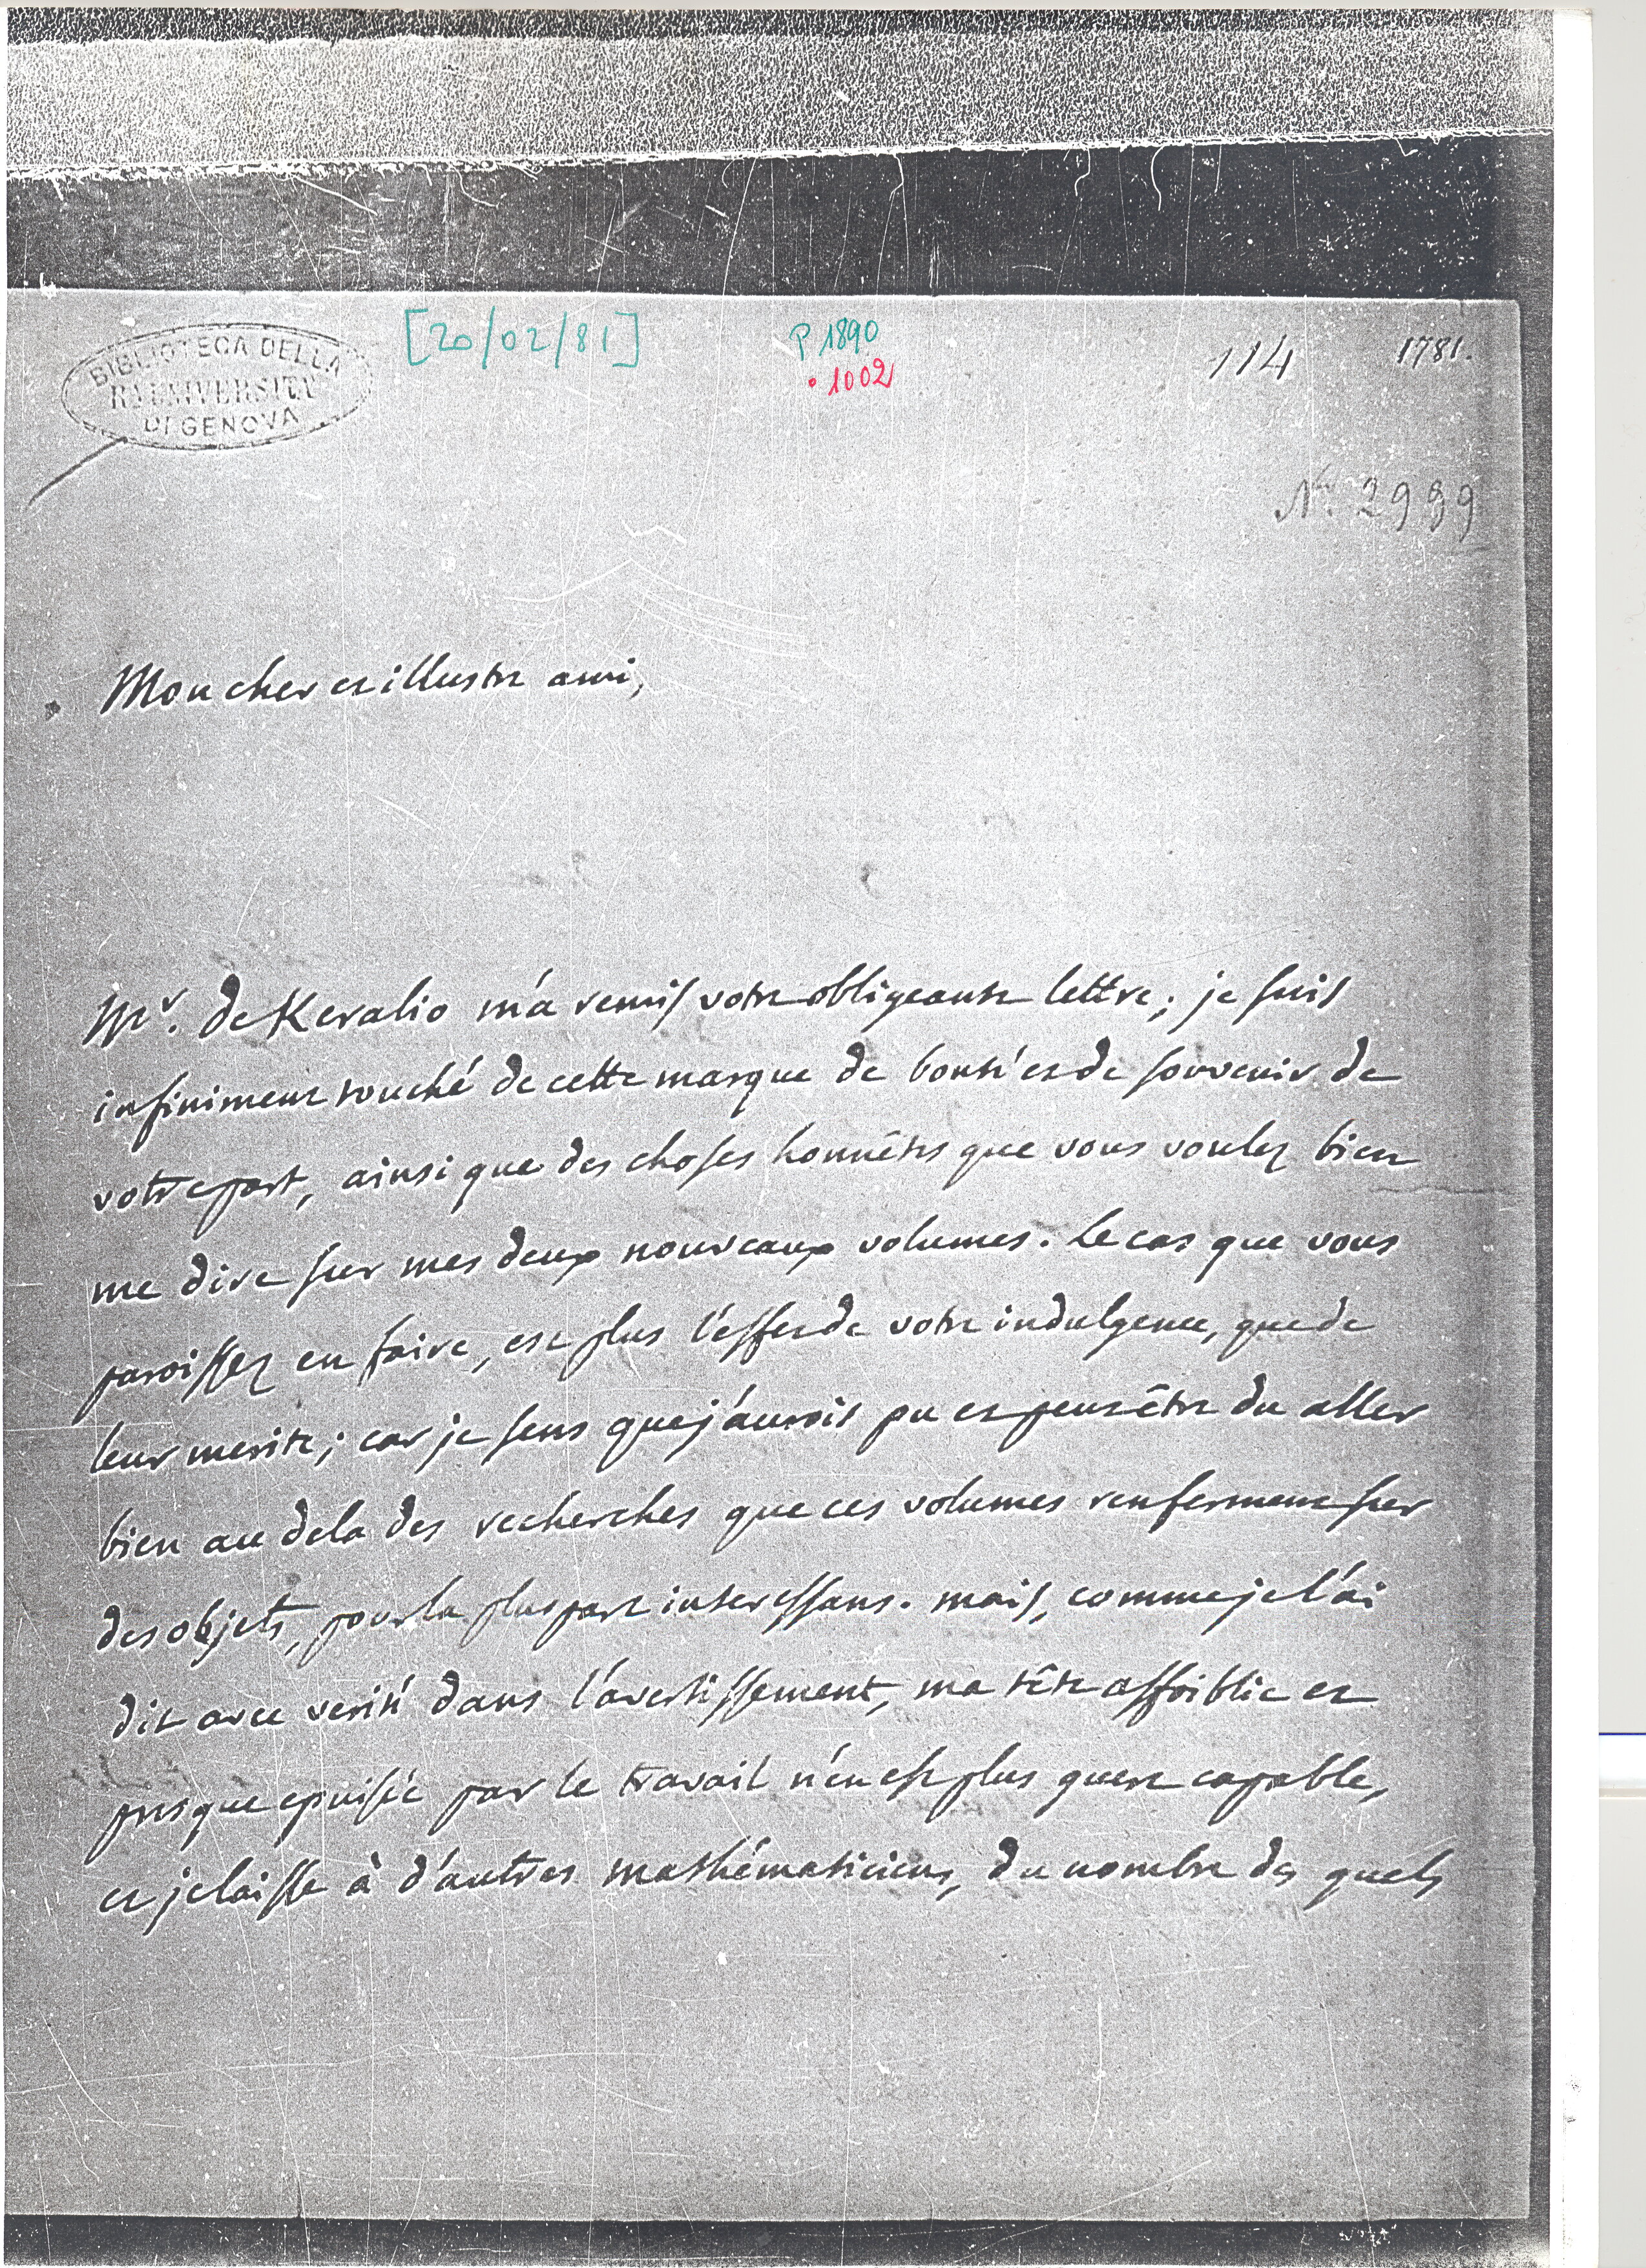 BIBLIOTECA DELLA
R. UNIVERSITA
DI GENOVA
[20/02/81]
P 1890
. 1002
114
1781.
Nr. 2999
Mon cher et illustre ami,
Mr. de Keralio m'a remis votre obligeante lettre; je suis
infiniment touché de cette marque de bonté et de souvenir de
votre part, ainsi que des choses honnêtes que vous voulez bien
me dire sur mes deux nouveaux volumes. Le cas que vous
paroissez en faire, est plus l'effet de votre indulgence, que de
leur merite; car je sens que j'aurois pu et peut être du aller
bien au dela des recherches que ces volumes renferment sur
des objets, pour la plus part interessans. mais, comme je l'ai
dit avec verité dans l'avertissement, ma tête affoiblie et
presque epuisée par le travail n'en est plus guere capable,
et je laisse à d'autres mathématiciens, du nombre des quels